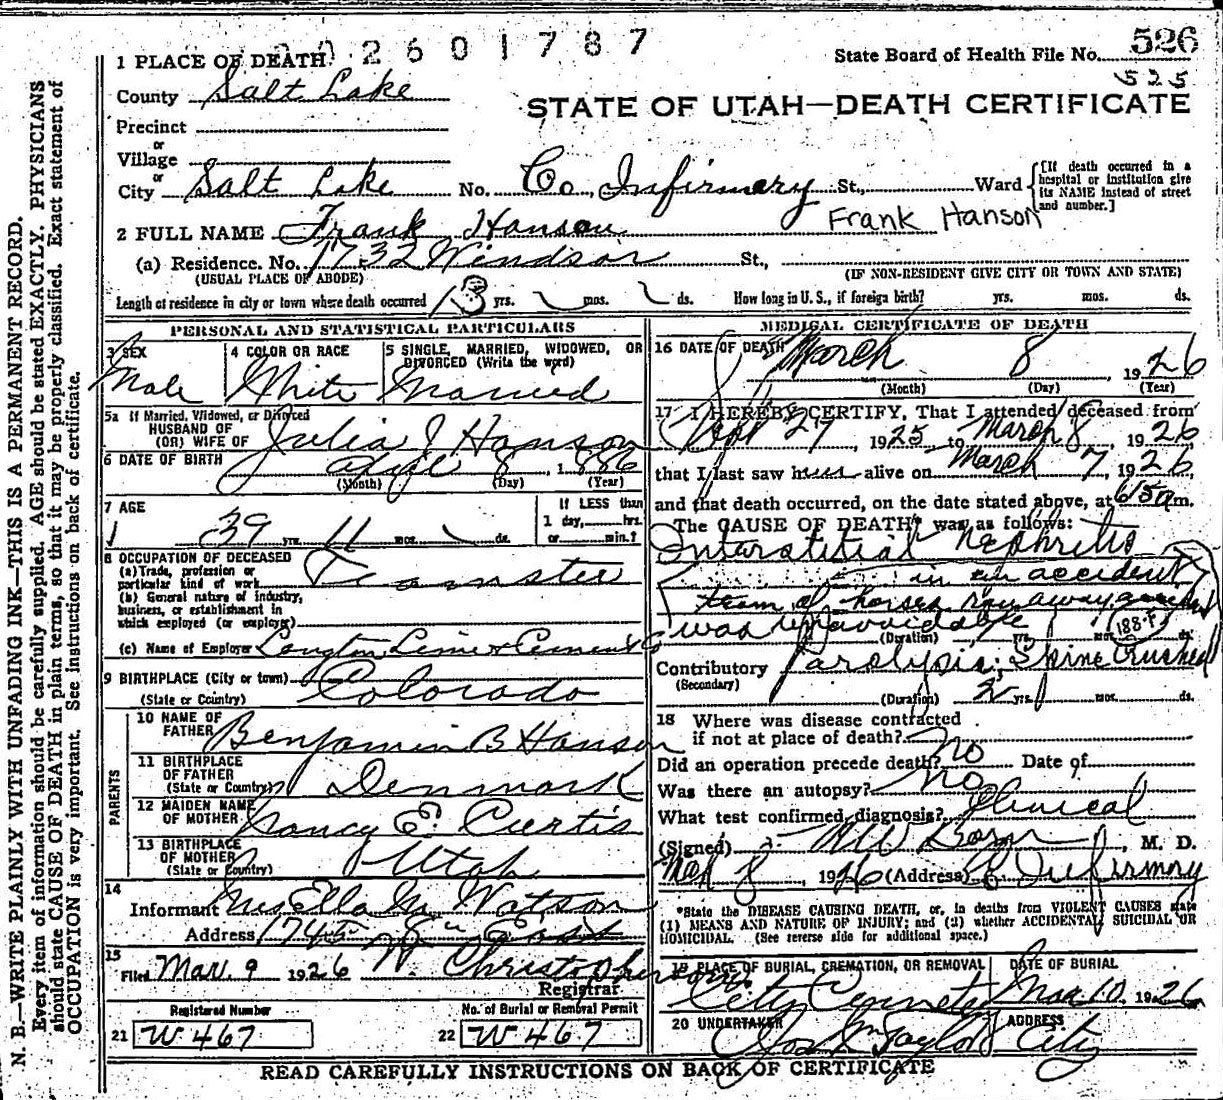 2601787
State Board of Health File No. 526
525
1 PLACE OF DEATH
County Salt Lake
STATE OF UTAH—DEATH CERTIFICATE
Precinct
or
Village
or
City Salt Lake No. Co. Infirmary St., Ward
[If death occurred in a hospital or institution give its NAME instead of street and number.]
2 FULL NAME Frank Hanson Frank Hanson
(a) Residence. No. 1732 Windsor St.,
(USUAL PLACE OF ABODE) (IF NON-RESIDENT GIVE CITY OR TOWN AND STATE)
Length of residence in city or town where death occurred 13 yrs. mos. ds. How long in U. S., if foreign birth? yrs. mos. ds.
PERSONAL AND STATISTICAL PARTICULARS
3 SEX
Male
4 COLOR OR RACE
White
5 SINGLE, MARRIED, WIDOWED, OR
DIVORCED (Write the word)
Married
5a If Married, Widowed, or Divorced
HUSBAND OF
(OR) WIFE OF Julia J Hanson
6 DATE OF BIRTH 8, 1886
(Month) (Day) (Year)
7 AGE
39 yrs. 11 mos. ds.
If LESS than
1 day, hrs.
or min.?
8 OCCUPATION OF DECEASED
(a) Trade, profession or
particular kind of work Teamster
(b) General nature of industry,
business, or establishment in
which employed (or employer)
(c) Name of Employer Langton Lime & Cement Co
9 BIRTHPLACE (City or town) Colorado
(State or Country)
PARENTS
10 NAME OF
FATHER Benjamin B Hanson
11 BIRTHPLACE
OF FATHER
(State or Country) Denmark
12 MAIDEN NAME
OF MOTHER Nancy E. Curtis
13 BIRTHPLACE
OF MOTHER
(State or Country) Utah
14
Informant Mrs Ella M. Watson
Address 1745 East
15
Filed Mar. 9 1926 W. Christopherson
Registrar
Registered Number
21 W 467
No. of Burial or Removal Permit
22 W 467
MEDICAL CERTIFICATE OF DEATH
16 DATE OF DEATH March 8, 1926
(Month) (Day) (Year)
17 I HEREBY CERTIFY, That I attended deceased from
Sept 27 1925 to March 8, 1926
that I last saw him alive on March 7, 1926,
and that death occurred, on the date stated above, at 615a m.
The CAUSE OF DEATH* was as follows:
Interstitial Nephritis
in an accident
team of horses ran away
was unavoidable
188-F
(Duration) yrs. mos. ds.
Contributory Paralysis; Spine Crushed
(Secondary)
(Duration) 2 yrs. mos. ds.
18 Where was disease contracted
if not at place of death?
Did an operation precede death? no Date of
Was there an autopsy? No
What test confirmed diagnosis? Clinical
(Signed) M. D.
Mar 8, 1926 (Address) Co Infirmary
*State the DISEASE CAUSING DEATH, or, in deaths from VIOLENT CAUSES state
(1) MEANS AND NATURE OF INJURY; and (2) whether ACCIDENTAL, SUICIDAL OR
HOMICIDAL. (See reverse side for additional space.)
19 PLACE OF BURIAL, CREMATION, OR REMOVAL
City Cemetery
DATE OF BURIAL
Mar 10, 1926
20 UNDERTAKER
Jos Wm Taylor
ADDRESS
City
READ CAREFULLY INSTRUCTIONS ON BACK OF CERTIFICATE
N. B.—WRITE PLAINLY WITH UNFADING INK—THIS IS A PERMANENT RECORD.
Every item of information should be carefully supplied. AGE should be stated EXACTLY. PHYSICIANS
should state CAUSE OF DEATH in plain terms, so that it may be properly classified. Exact statement of
OCCUPATION is very important. See instructions on back of certificate.